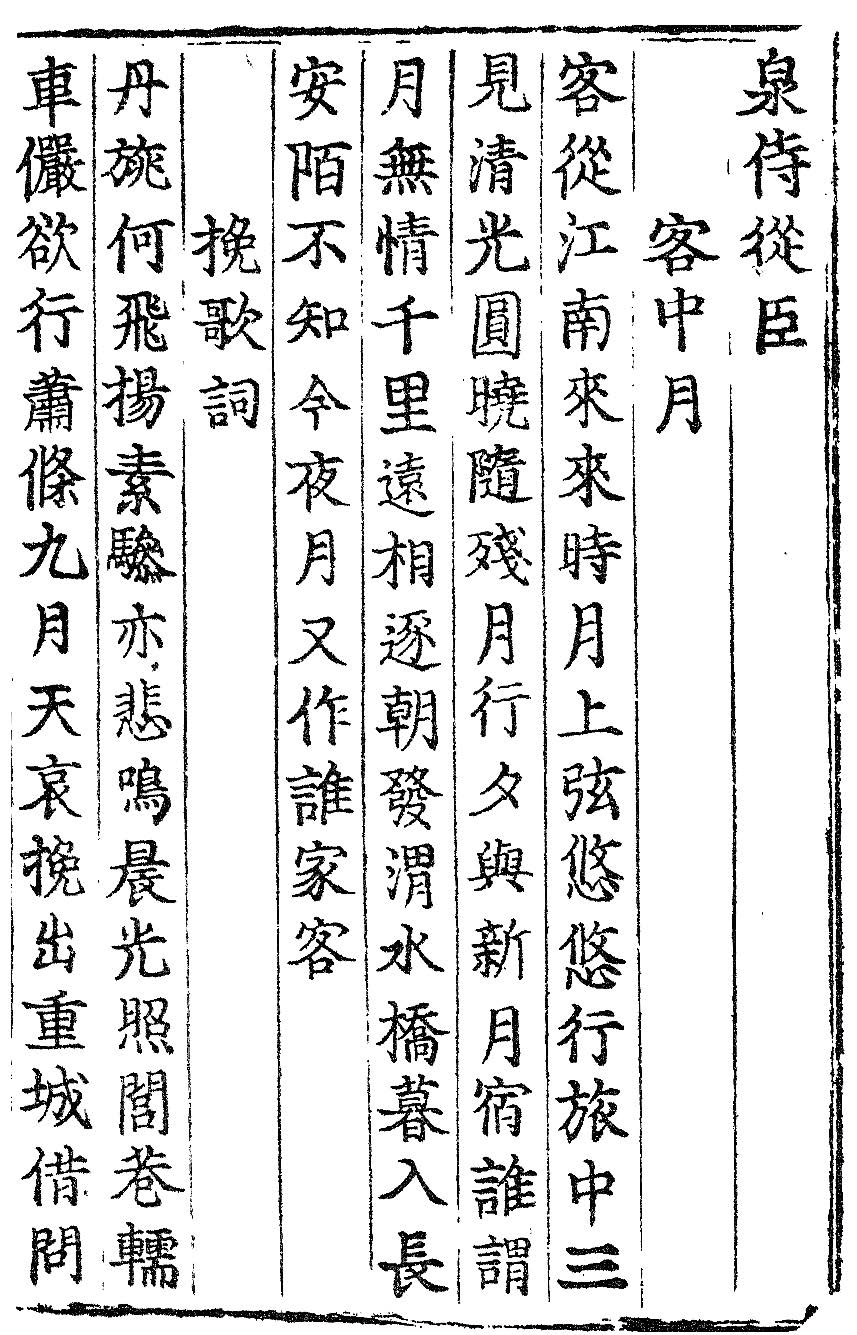 泉侍從臣
客中月
客從江南來來時月上弦悠悠行旅中三
見清光圓曉隨殘月行夕與新月宿誰謂
月無情千里遠相逐朝發渭水橋暮入長
安陌不知今夜月又作誰家客
挽歌詞
丹旐何飛揚素驂亦悲鳴晨光照閭巷轜
車儼欲行蕭條九月天哀挽出重城借問